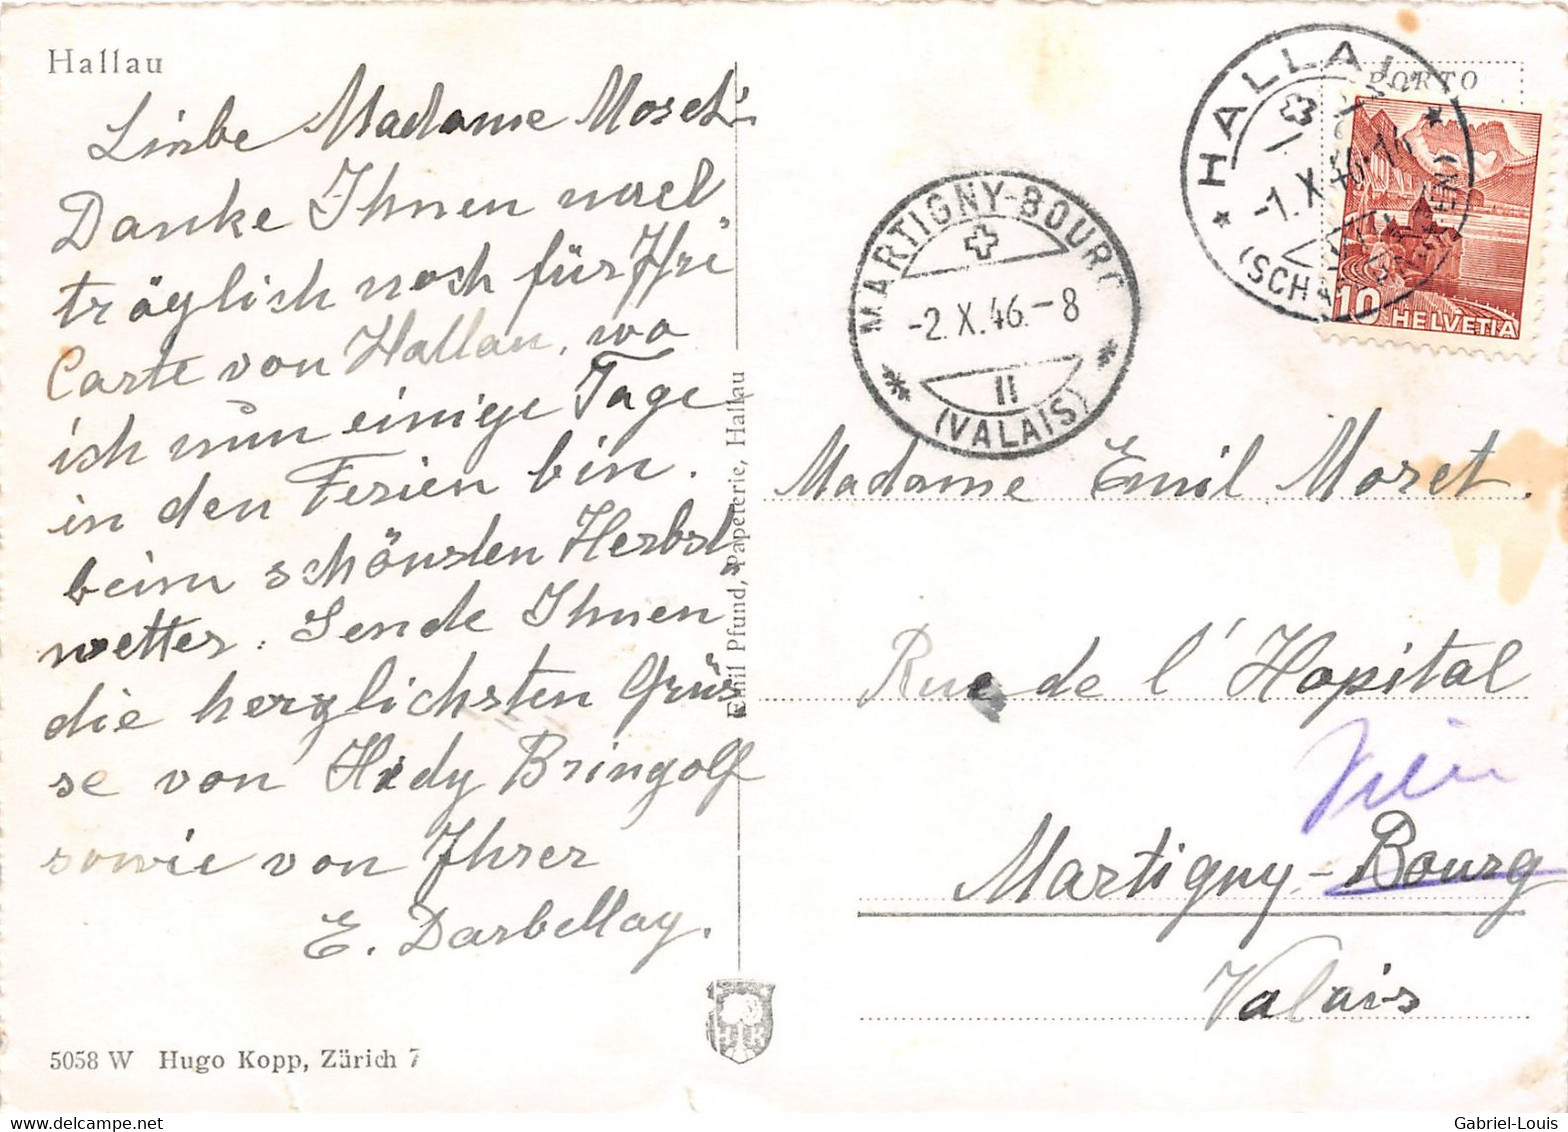 Hallau
Liebe Madame Moret.
Danke Ihnen nach
träglich noch für Ihre
Carte von Hallau, wo
ich nun einige Tage
in den Ferien bin.
beim schönsten Herbst
wetter. Sende Ihnen
die herzlichsten Grüs
se von Hedy Bringolf
sowie von Ihrer
E. Darbellay.
5058 W Hugo Kopp, Zürich 7
Emil Pfund, Papeterie, Hallau
PORTO
HALLAU
-1.X.46-14
(SCHAFFHAUSEN)
10 HELVETIA
MARTIGNY-BOURG
-2.X.46.-8
II
(VALAIS)
Madame Emil Moret.
Rue de l'Hopital
Martigny-Bourg
Valais
Gabriel-Louis